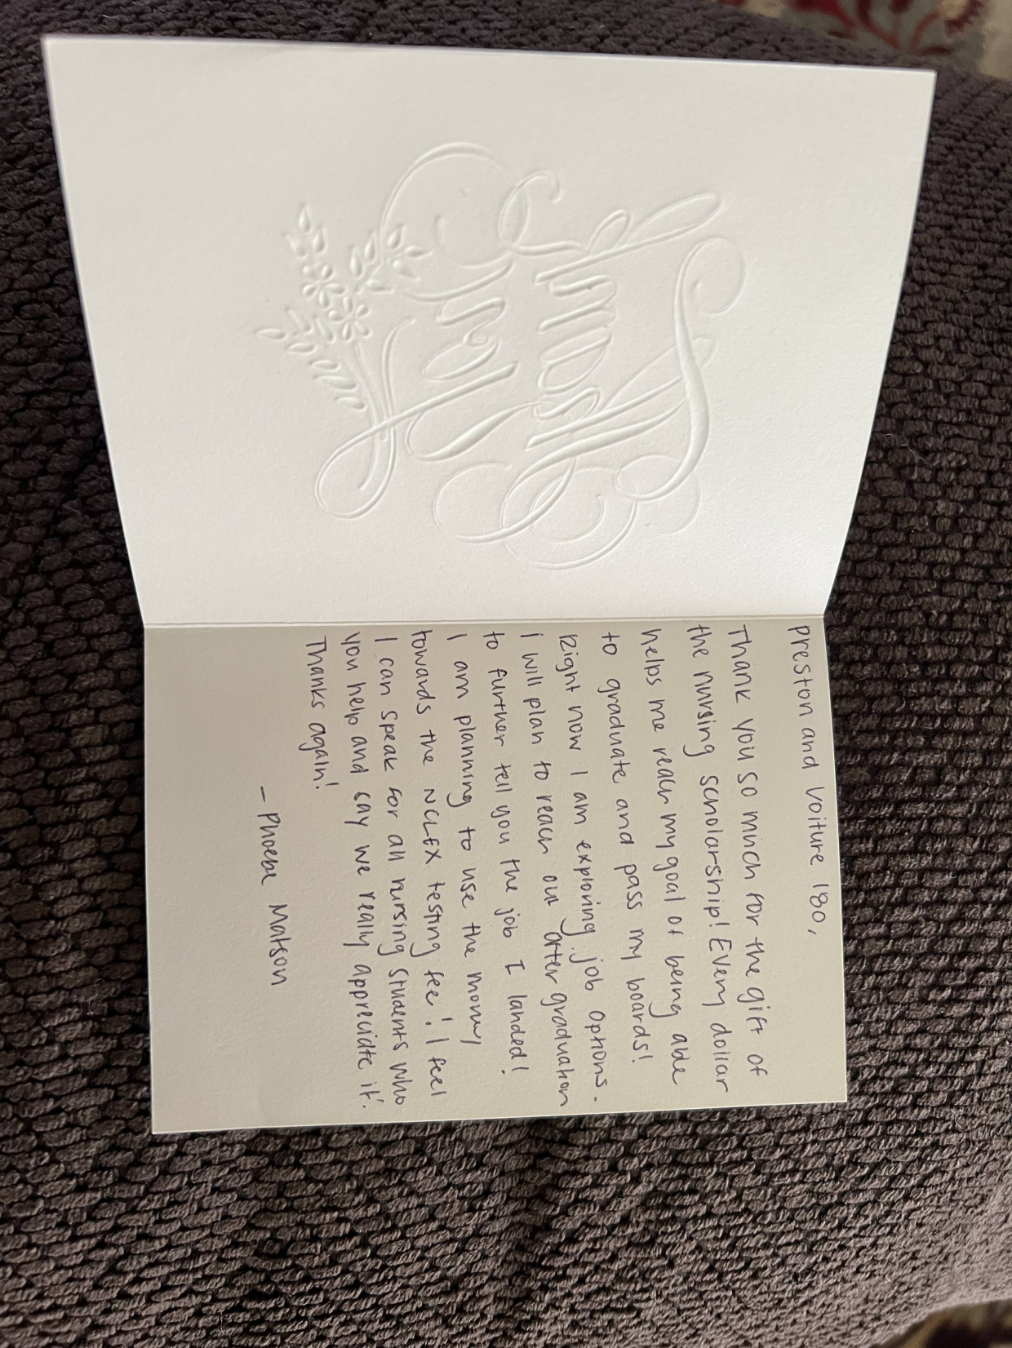 Thank
You
Preston and Voiture 180,
Thank you so much for the gift of
the nursing scholorship! Every dollar
helps me reach my goal of being able
to graduate and pass my boards!
Right now I am exploring job options.
i will plan to reach out after graduation
to further tell you the job I landed!
I am planning to use the money
towards the NCLEX testing fee! I feel
I can speak for all nursing students who
you help and say we really appreciate it.
Thanks again!
- Phoebe Matson